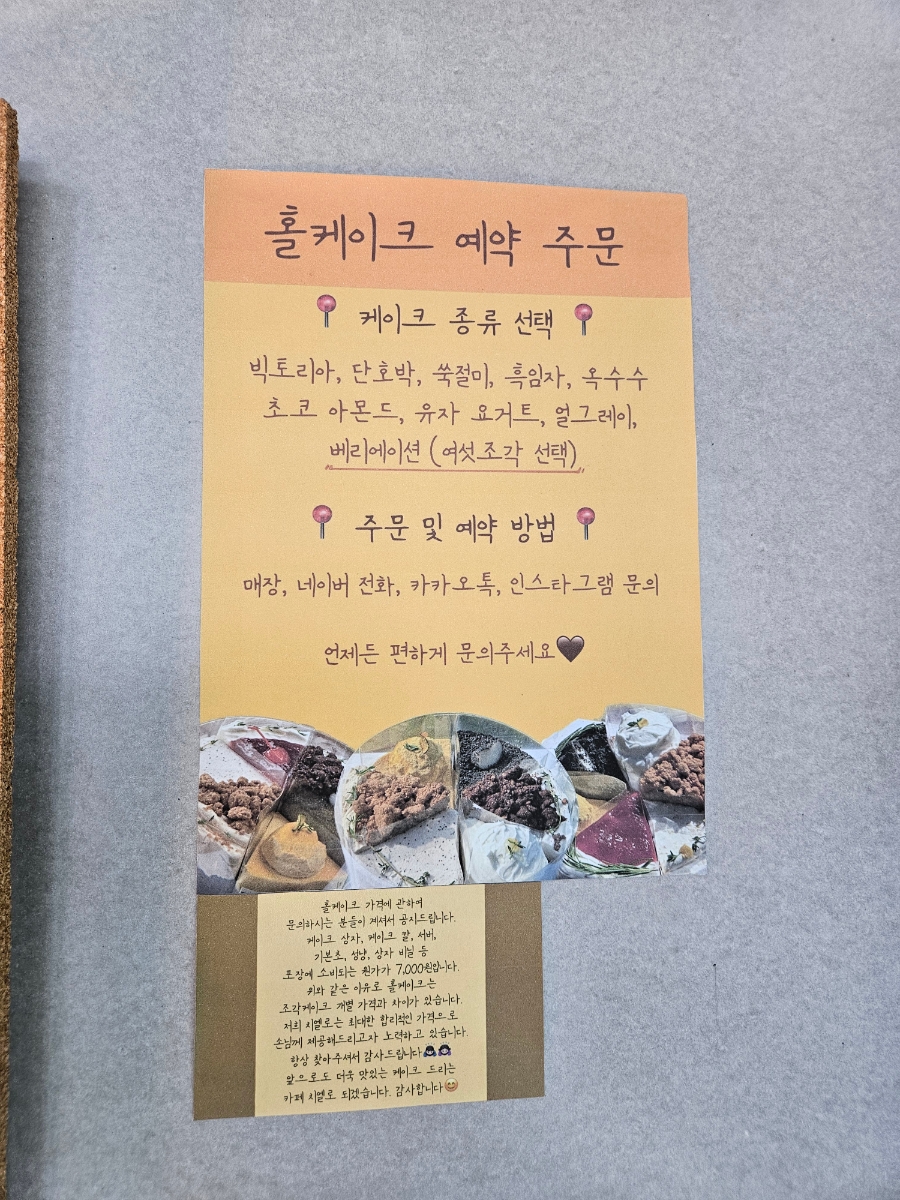 홀케이크 예약 주문
케이크 종류 선택
빅토리아, 단호박, 쑥절미, 흑임자, 옥수수
초코 아몬드, 유자 요거트, 얼그레이,
베리에이션 (여섯조각 선택)
주문 및 예약 방법
매장, 네이버 전화, 카카오톡, 인스타그램 문의
언제든 편하게 문의주세요🖤
홀케이크 가격에 관하여
문의하시는 분들이 계셔서 공지드립니다.
케이크 상자, 케이크 칼, 서버,
기본초, 성냥, 상자 비닐 등
포장에 소비되는 원가가 7,000원입니다.
위와 같은 이유로 홀케이크는
조각케이크 개별 가격과 차이가 있습니다.
저희 치엘로는 최대한 합리적인 가격으로
손님께 제공해드리고자 노력하고 있습니다.
항상 찾아주셔서 감사드립니다
앞으로도 더욱 맛있는 케이크 드리는
카페 치엘로 되겠습니다. 감사합니다😊